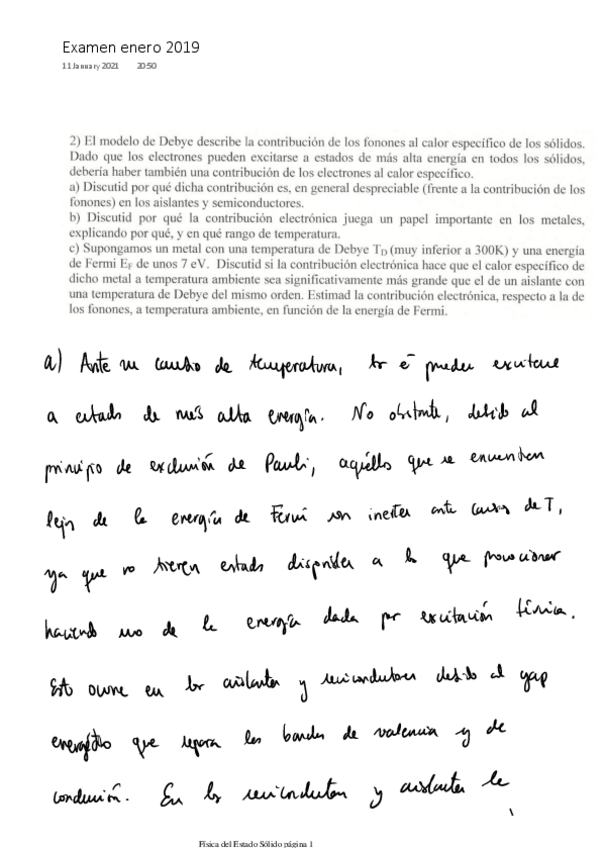 Examen enero 2019
11 January 2021 20:50
2) El modelo de Debye describe la contribución de los fonones al calor específico de los sólidos.
Dado que los electrones pueden excitarse a estados de más alta energía en todos los sólidos,
debería haber también una contribución de los electrones al calor específico.
a) Discutid por qué dicha contribución es, en general despreciable (frente a la contribución de los
fonones) en los aislantes y semiconductores.
b) Discutid por qué la contribución electrónica juega un papel importante en los metales,
explicando por qué, y en qué rango de temperatura.
c) Supongamos un metal con una temperatura de Debye TD (muy inferior a 300K) y una energía
de Fermi EF de unos 7 eV. Discutid si la contribución electrónica hace que el calor específico de
dicho metal a temperatura ambiente sea significativamente más grande que el de un aislante con
una temperatura de Debye del mismo orden. Estimad la contribución electrónica, respecto a la de
los fonones, a temperatura ambiente, en función de la energía de Fermi.
a) Ante un cambio de temperatura, los e⁻ pueden excitarse
a estados de más alta energía. No obstante, debido al
principio de exclusión de Pauli, aquéllos que se encuentren
lejos de la energía de Fermi son inertes ante cambios de T,
ya que no tienen estados disponibles a los que promocionar
haciendo uso de la energía dada por excitación térmica.
Esto ocurre en los aislantes y semiconductores debido al gap
energético que separa las bandas de valencia y de
conducción. En los semiconductores y aislantes la
Física del Estado Sólido página 1